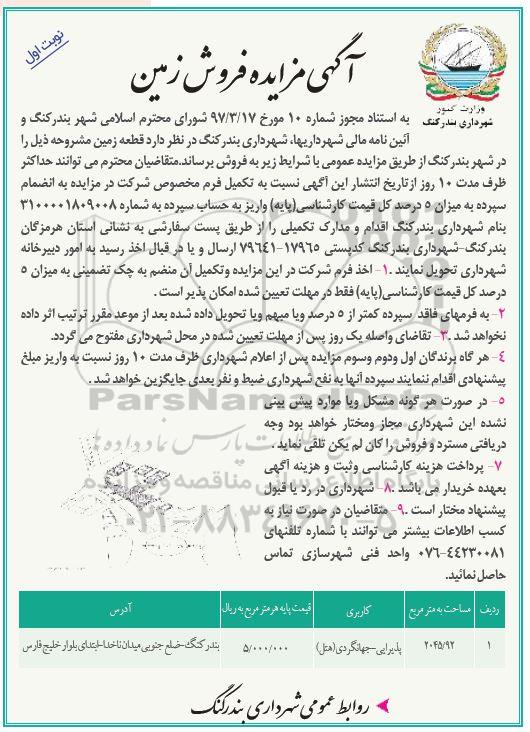 نوبت اول
آگهی مزایده فروش زمین
وزارت کشور
شهرداری بندرکنگ
به استناد مجوز شماره ۱۰ مورخ ۹۷/۳/۱۷ شورای محترم اسلامی شهر بندرکنگ و
آئین نامه مالی شهرداریها، شهرداری بندرکنگ در نظر دارد قطعه زمین مشروحه ذیل را
در شهر بندرکنگ از طریق مزایده عمومی با شرایط زیر به فروش برساند.متقاضیان محترم می توانند حداکثر
ظرف مدت ۱۰ روز ازتاریخ انتشار این آگهی نسبت به تکمیل فرم مخصوص شرکت در مزایده به انضمام
سپرده به میزان ۵ درصد کل قیمت کارشناسی(پایه) واریز به حساب سپرده به شماره ۳۱۰۰۰۰۱۸۰۹۰۰۸
بنام شهرداری بندرکنگ اقدام و مدارک تکمیلی را از طریق پست سفارشی به نشانی استان هرمزگان
بندرکنگ-شهرداری بندرکنگ کدپستی ۱۷۹۶۵-۷۹۶۴۱ ارسال و یا در قبال اخذ رسید به امور دبیرخانه
شهرداری تحویل نمایند .۱- اخذ فرم شرکت در این مزایده وتکمیل آن منضم به چک تضمینی به میزان ۵
درصد کل قیمت کارشناسی(پایه) فقط در مهلت تعیین شده امکان پذیر است .
۲- به فرمهای فاقد سپرده کمتر از ۵ درصد ویا مبهم ویا تحویل داده شده بعد از موعد مقرر ترتیب اثر داده
نخواهد شد .۳- تقاضای واصله یک روز پس از مهلت تعیین شده در محل شهرداری مفتوح می گردد.
۴- هر گاه برندگان اول ودوم وسوم مزایده پس از اعلام شهرداری ظرف مدت ۱۰ روز نسبت به واریز مبلغ
پیشنهادی اقدام ننمایند سپرده آنها به نفع شهرداری ضبط و نفر بعدی جایگزین خواهد شد .
۵- در صورت هر گونه مشکل ویا موارد پیش بینی
نشده این شهرداری مجاز ومختار خواهد بود وجه
دریافتی مسترد و فروش را کان لم یکن تلقی نماید .
۷- پرداخت هزینه کارشناسی وثبت و هزینه آگهی
بعهده خریدار می باشد .۸- شهرداری در رد یا قبول
پیشنهاد مختار است .۹- متقاضیان در صورت نیاز به
کسب اطلاعات بیشتر می توانند با شماره تلفنهای
۰۷۶-۴۴۲۳۰۰۸۱ واحد فنی شهرسازی تماس
حاصل نمائید.
ParsNamadData
پایگاه اطلاع رسانی مناقصه و مزایده
۰۲۱-۸۸۳۴۹۶۷۰-۵
ردیف مساحت به متر مربع کاربری قیمت پایه هر متر مربع به ریال آدرس
۱ ۲۰۴۵/۹۲ پذیرایی-جهانگردی(هتل) ۵/۰۰۰/۰۰۰ بندر کنگ-ضلع جنوبی میدان ناخدا-ابتدای بلوار خلیج فارس
روابط عمومی شهرداری بندرکنگ